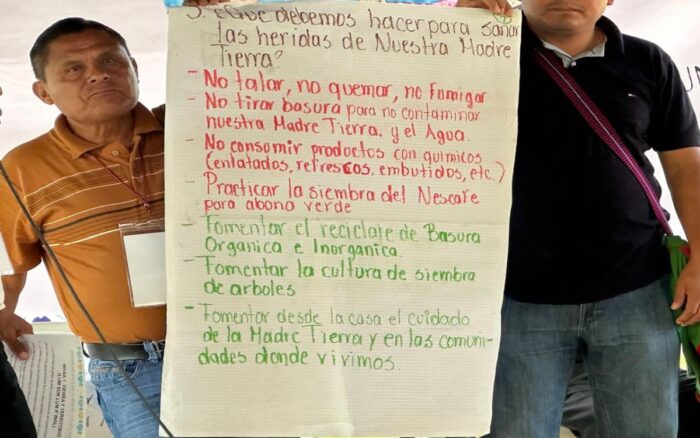 3. ¿Que debemos hacer para sanar
las heridas de Nuestra Madre
Tierra?
- No talar, no quemar, no Fumigar
- No tirar basura para no contaminar
nuestra Madre Tierra, y el Agua.
- No consumir productos con quimicos
(enlatados, refrescos, embutidos, etc.)
- Practicar la siembra del Nescafe
para abono verde
- Fomentar el reciclaje de Basura
Organica e Inorganica.
- Fomentar la cultura de siembra
de arboles
- Fomentar desde la casa el cuidado
de la Madre Tierra y en las comuni-
dades donde vivimos.